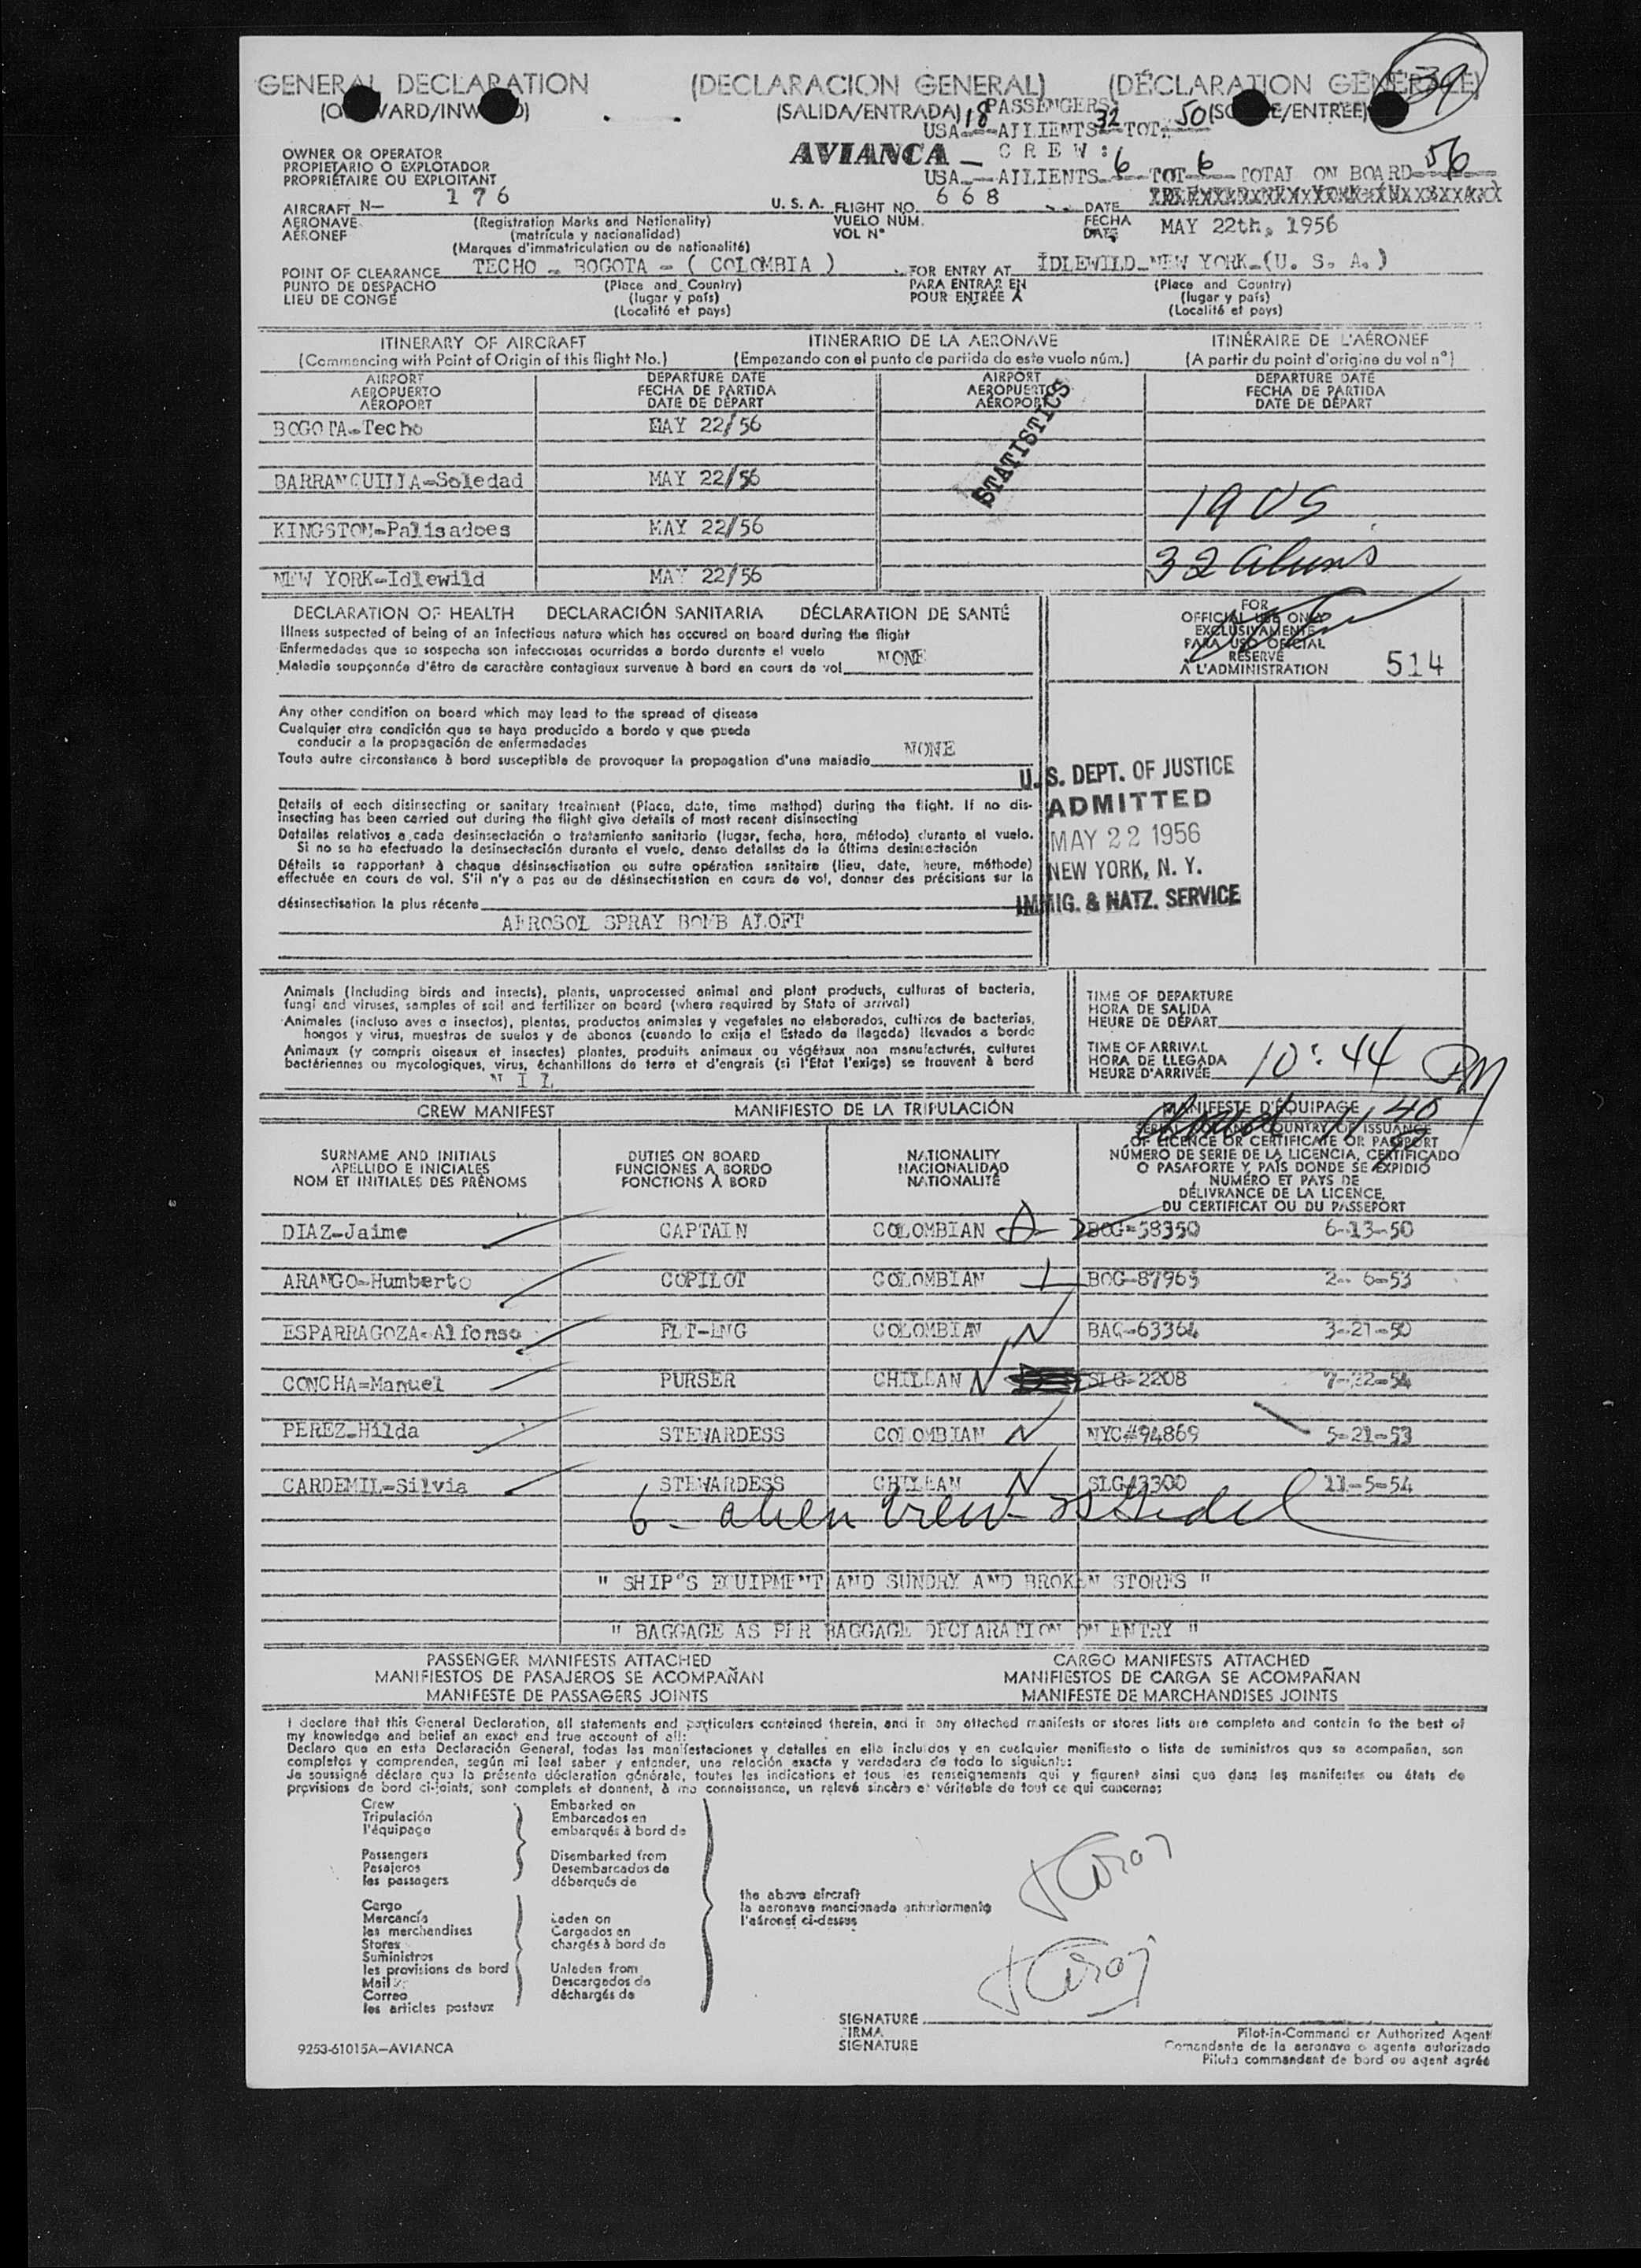 39
GENERAL DECLARATION (DECLARACION GENERAL) (DÉCLARATION GÉNÉRALE)
(SALIDA/ENTRADA) PASSENGERS
USA 18 AILIENTS 32 TOT. 50
AVIANCA - CREW:
USA.-- AILIENTS 6 TOT 6 TOTAL ON BOARD 56
OWNER OR OPERATOR
PROPIETARIO O EXPLOTADOR
PROPRIÉTAIRE OU EXPLOITANT
AIRCRAFT N- 176 U. S. A. FLIGHT NO. 668 DATE
AERONAVE (Registration Marks and Nationality) VUELO NÚM. FECHA MAY 22th, 1956
AÉRONEF (matrícula y nacionalidad) VOL N° DATE
(Marques d'immatriculation ou de nationalité)
POINT OF CLEARANCE TECHO - BOGOTA - ( COLOMBIA ) FOR ENTRY AT IDLEWILD-NEW YORK-(U. S. A.)
PUNTO DE DESPACHO (Place and Country) PARA ENTRAR EN (Place and Country)
LIEU DE CONGÉ (lugar y país) POUR ENTRÉE À (lugar y país)
(Localité et pays) (Localité et pays)
ITINERARY OF AIRCRAFT ITINERARIO DE LA AERONAVE ITINÉRAIRE DE L'AÉRONEF
(Commencing with Point of Origin of this flight No.) (Empezando con el punto de partida de este vuelo núm.) (A partir du point d'origine du vol n°)
AIRPORT DEPARTURE DATE AIRPORT DEPARTURE DATE
AEROPUERTO FECHA DE PARTIDA AEROPUERTO FECHA DE PARTIDA
AÉROPORT DATE DE DÉPART AÉROPORT DATE DE DÉPART
STATISTICS
BOGOTA-Techo MAY 22/56
BARRANQUILLA-Soledad MAY 22/56
KINGSTON-Palisadoes MAY 22/56
NEW YORK-Idlewild MAY 22/56
32 aliens
DECLARATION OF HEALTH DECLARACIÓN SANITARIA DÉCLARATION DE SANTÉ
Illness suspected of being of an infectious nature which has occured on board during the flight
Enfermedades que se sospecha son infecciosas ocurridas a bordo durante el vuelo
Maladie soupçonnée d'être de caractère contagieux survenue à bord en cours de vol NONE
FOR
OFFICIAL USE ONLY
EXCLUSIVAMENTE
PARA USO OFICIAL
RÉSERVÉ
À L'ADMINISTRATION 514
Any other condition on board which may lead to the spread of disease
Cualquier otra condición que se haya producido a bordo y que pueda
conducir a la propagación de enfermedades
Toute autre circonstance à bord susceptible de provoquer la propagation d'une maladie NONE
Details of each disinsecting or sanitary treatment (Place, date, time method) during the flight. If no dis-
insecting has been carried out during the flight give details of most recent disinsecting
Detalles relativos a cada desinsectación o tratamiento sanitario (lugar, fecha, hora, método) durante el vuelo.
Si no se ha efectuado la desinsectación durante el vuelo, dense detalles de la última desinsectación
Détails se rapportant à chaque désinsectisation ou autre opération sanitaire (lieu, date, heure, méthode)
effectuée en cours de vol. S'il n'y a pas eu de désinsectisation en cours de vol, donner des précisions sur la
désinsectisation la plus récente
AEROSOL SPRAY BOMB ALOFT
U. S. DEPT. OF JUSTICE
ADMITTED
MAY 22 1956
NEW YORK, N. Y.
IMMIG. & NATZ. SERVICE
Animals (Including birds and insects), plants, unprocessed animal and plant products, cultures of bacteria,
fungi and viruses, samples of soil and fertilizer on board (where required by State of arrival)
Animales (incluso aves o insectos), plantas, productos animales y vegetales no elaborados, cultivos de bacterias,
hongos y virus, muestras de suelos y de abonos (cuando lo exija el Estado de llegada) llevados a bordo
Animaux (y compris oiseaux et insectes) plantes, produits animaux ou végétaux non manufacturés, cultures
bactériennes ou mycologiques, virus, échantillons de terre et d'engrais (si l'Etat l'exige) se trouvent à bord
NIL
TIME OF DEPARTURE
HORA DE SALIDA
HEURE DE DÉPART
TIME OF ARRIVAL
HORA DE LLEGADA 10:44 PM
HEURE D'ARRIVÉE
CREW MANIFEST MANIFIESTO DE LA TRIPULACIÓN MANIFESTE D'ÉQUIPAGE
SURNAME AND INITIALS DUTIES ON BOARD NATIONALITY
APELLIDO E INICIALES FUNCIONES A BORDO NACIONALIDAD
NOM ET INITIALES DES PRÉNOMS FONCTIONS À BORD NATIONALITÉ
SERIAL NO. AND COUNTRY OF ISSUANCE
OF LICENCE OR CERTIFICATE OR PASSPORT
NÚMERO DE SERIE DE LA LICENCIA, CERTIFICADO
O PASAPORTE Y PAÍS DONDE SE EXPIDIÓ
NUMÉRO ET PAYS DE
DÉLIVRANCE DE LA LICENCE,
DU CERTIFICAT OU DU PASSEPORT
DIAZ-Jaime CAPTAIN COLOMBIAN BOG=58350 6-13-50
ARANGO-Humberto COPILOT COLOMBIAN BOG-87963 2-6-53
ESPARRAGOZA-Alfonso FLT-ENG COLOMBIAN N BAQ-63364 3-21-50
CONCHA=Manuel PURSER CHILEAN N SLG-2208 7-22-54
PEREZ-Hilda STEWARDESS COLOMBIAN N NYC#94869 5-21-53
CARDEMIL-Silvia STEWARDESS CHILEAN N SLG#3300 11-5-54
6 - alien crew
" SHIP'S EQUIPMENT AND SUNDRY AND BROKEN STORES "
" BAGGAGE AS PER BAGGAGE DECLARATION ON ENTRY "
PASSENGER MANIFESTS ATTACHED CARGO MANIFESTS ATTACHED
MANIFIESTOS DE PASAJEROS SE ACOMPAÑAN MANIFIESTOS DE CARGA SE ACOMPAÑAN
MANIFESTE DE PASSAGERS JOINTS MANIFESTE DE MARCHANDISES JOINTS
I declare that this General Declaration, all statements and particulars contained therein, and in any attached manifests or stores lists are complete and contain to the best of
my knowledge and belief an exact and true account of all:
Declaro que en esta Declaración General, todas las manifestaciones y detalles en ella incluidos y en cualquier manifiesto o lista de suministros que se acompañan, son
completos y comprenden, según mi leal saber y entender, una relación exacta y verdadera de todo lo siguiente:
Je soussigné déclare que la présente déclaration générale, toutes les indications et tous les renseignements qui y figurent ainsi que dans les manifestes ou états de
provisions de bord ci-joints, sont complets et donnent, à ma connaissance, un relevé sincère et véritable de tout ce qui concerne:
Crew Embarked on
Tripulación Embarcados en
l'équipage embarqués à bord de
Passengers Disembarked from
Pasajeros Desembarcados de
les passagers débarqués de
the above aircraft
la aeronave mencionada anteriormente
l'aéronef ci-dessus
Cargo
Mercancía Laden on
les marchandises Cargados en
Stores chargés à bord de
Suministros
les provisions de bord Unladen from
Mail Descargados de
Correo déchargés de
les articles postaux
SIGNATURE
FIRMA
SIGNATURE
Pilot-in-Command or Authorized Agent
Comandante de la aeronave o agente autorizado
Pilote commandant de bord ou agent agréé
9253-61015A-AVIANCA